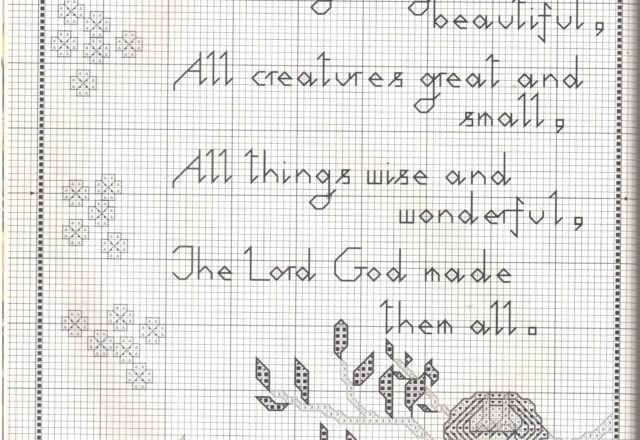 beautiful,
All creatures great and
small,
All things wise and
wonderful,
The Lord God made
them all.